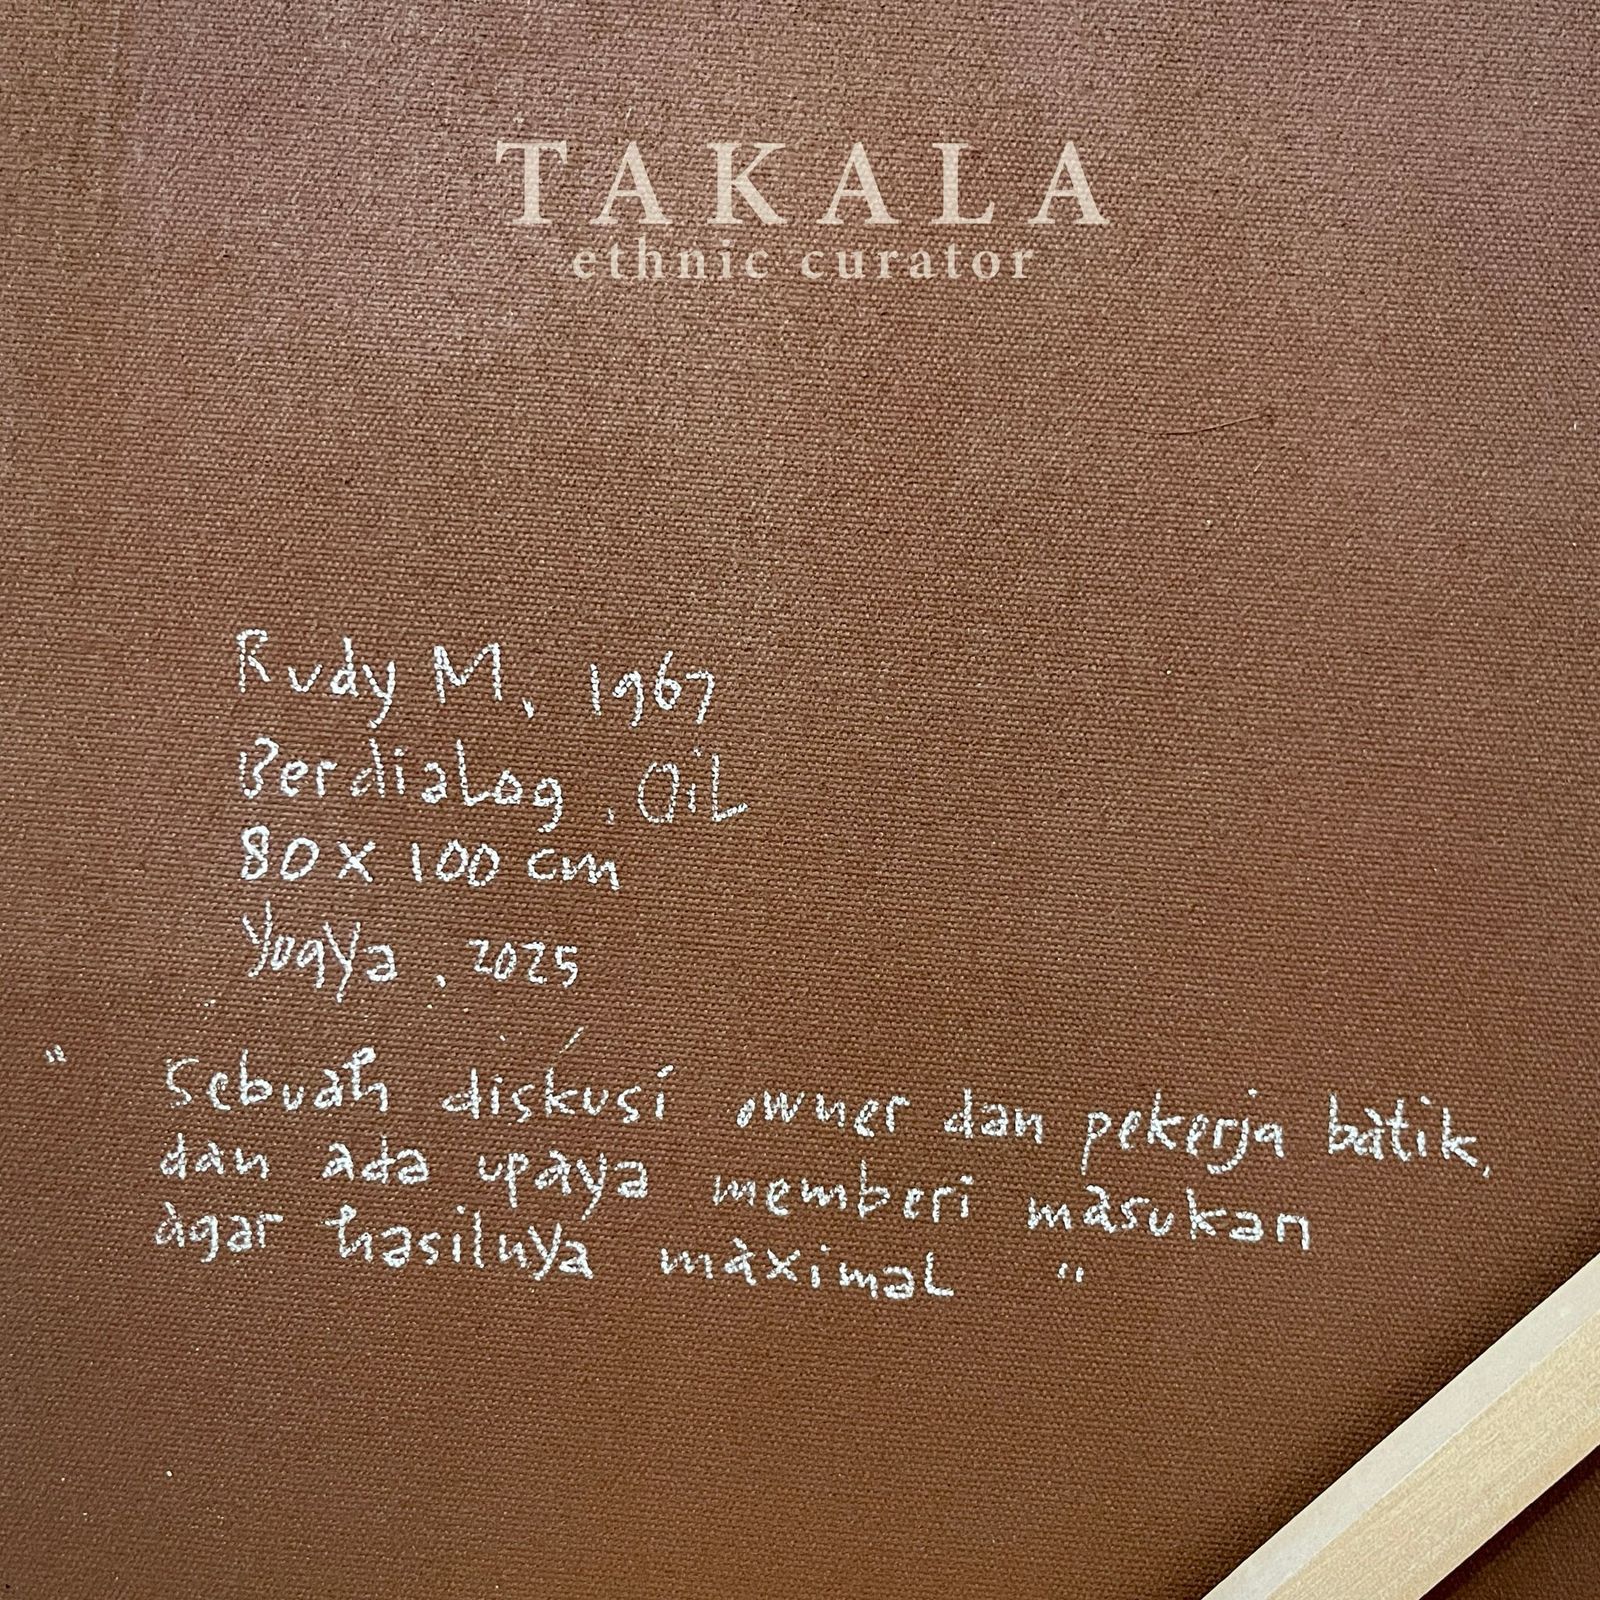 TAKALA
ethnic curator
Rudy M, 1967
Berdialog, Oil
80 x 100 cm
Yogya, 2025
" Sebuah diskusi owner dan pekerja batik,
dan ada upaya memberi masukan
agar hasilnya maximal "